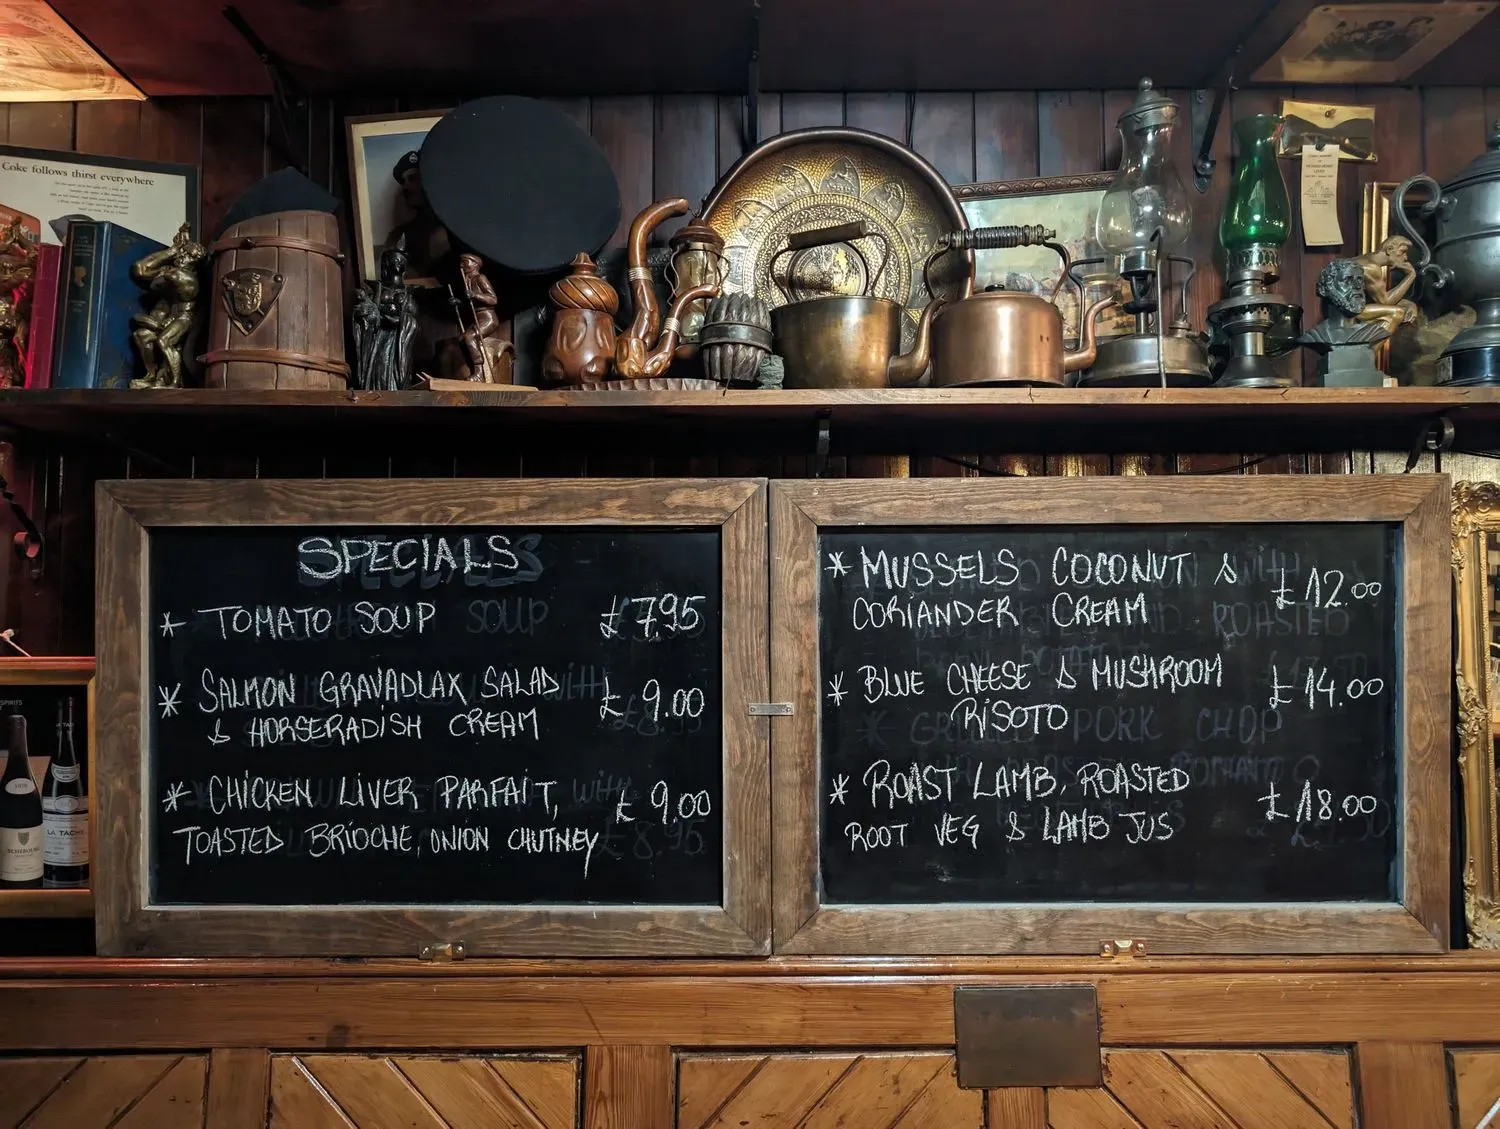 Coke follows thirst everywhere
SPECIALS
* TOMATO SOUP £7.95
* SALMON GRAVADLAX SALAD
& HORSERADISH CREAM £9.00
* CHICKEN LIVER PARFAIT,
TOASTED BRIOCHE, ONION CHUTNEY £9.00
* MUSSELS COCONUT &
CORIANDER CREAM £12.00
* BLUE CHEESE & MUSHROOM
RISOTO £14.00
* ROAST LAMB, ROASTED
ROOT VEG & LAMB JUS £18.00
SPIRITS
LA TACHE